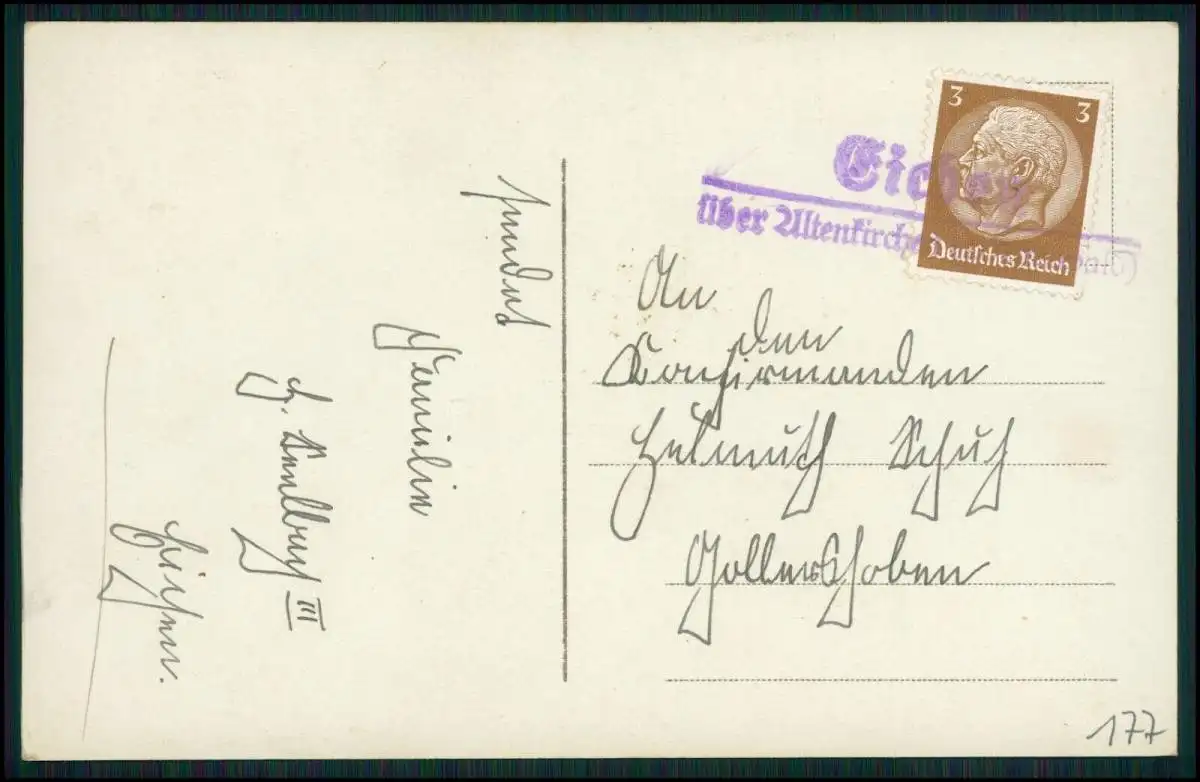 3 3
Deutsches Reich
Eichen
über Altenkirchen
An
den
Konfirmanden
Helmuth Schuh
Gollershoben
sendet
Familie
H. Seelbach III
Eichen.
177